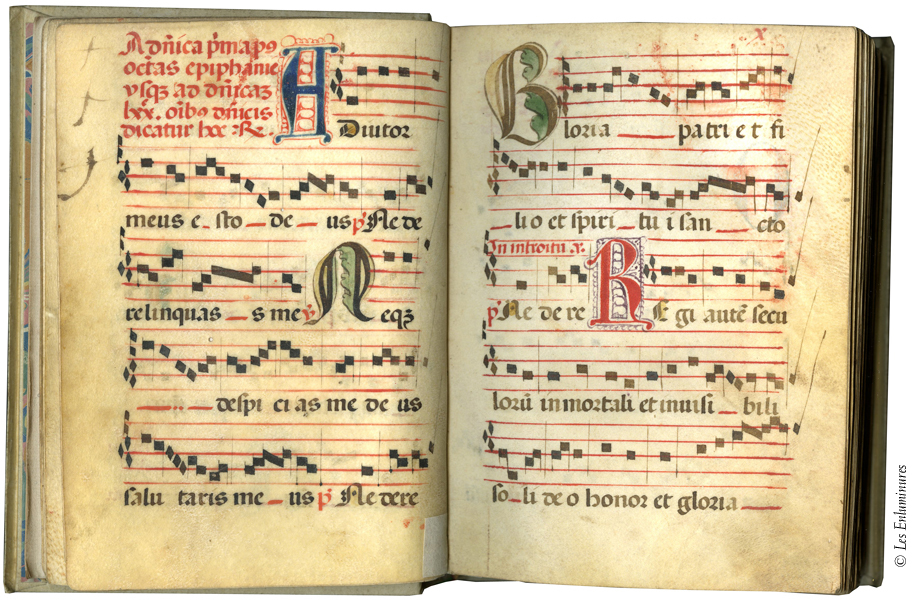 A dñica p̃ma p9
octãs epiphãnie
vsqz ad dñicaz
lxx. oĩbus dñicis
dicatur hec R.
A Diutor
meus e sto de us p̃ Ne de
relinquas s me ℣ N eqz
despi ci as me de us
salu taris me us p̃ Ne dere
x
G loria patri e t fi
li o et spiri tu i san cto
In introitu a.
p̃ Ne de re R E gi autẽ secu
lorũ in mortali et inuisi bili
so li de o honor et gloria
© Les Enluminures